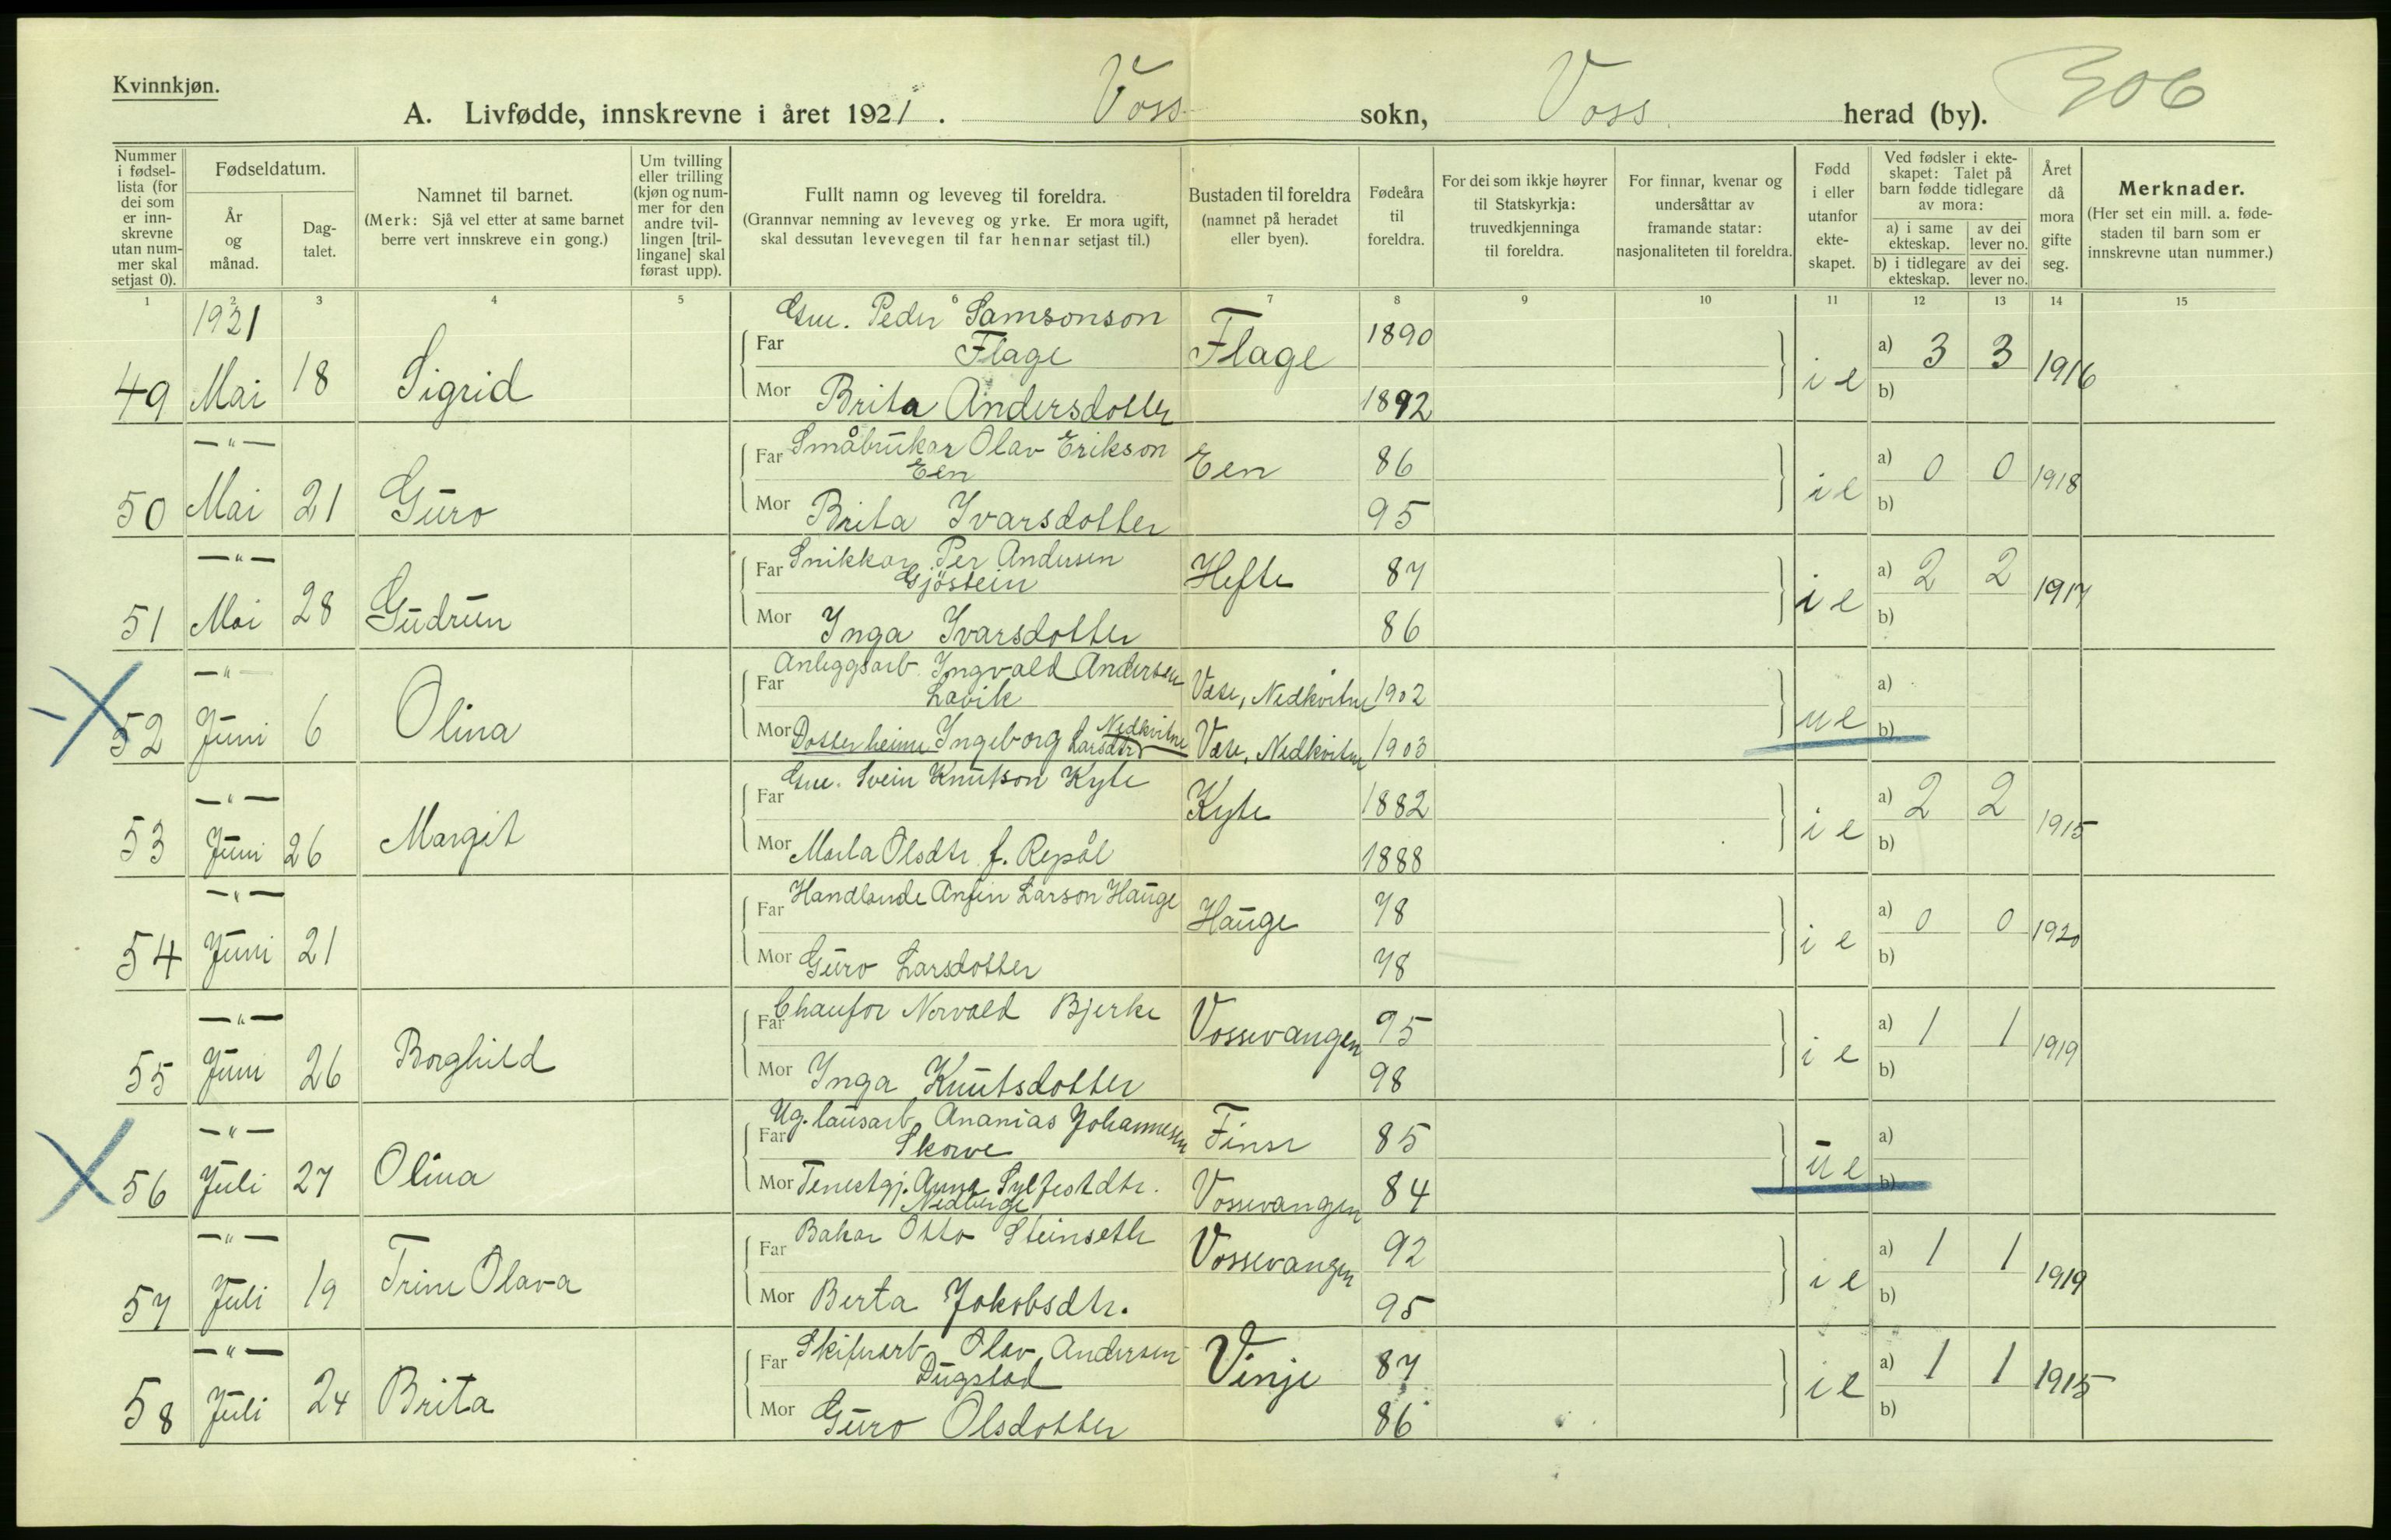 Kvinnkjøn.
306
A. Livfødde, innskrevne i året 1921. Voss sokn, Voss herad (by).
Nummer i fødsel-lista (for dei som er inn-skrevne utan num-mer skal setjast 0).
Fødseldatum.
År og månad.
Dag-talet.
Namnet til barnet.
(Merk: Sjå vel etter at same barnet berre vert innskreve ein gong.)
Um tvilling eller trilling (kjøn og num-mer for den andre tvil-lingen [tril-lingane] skal førast upp).
Fullt namn og leveveg til foreldra.
(Grannvar nemning av leveveg og yrke. Er mora ugift, skal dessutan levevegen til far hennar setjast til.)
Bustaden til foreldra
(namnet på heradet eller byen).
Fødeåra til foreldra.
For dei som ikkje høyrer til Statskyrkja: truvedkjenninga til foreldra.
For finnar, kvenar og undersåttar av framande statar: nasjonaliteten til foreldra.
Fødd i eller utanfor ekte-skapet.
Ved fødsler i ekte-skapet: Talet på barn fødde tidlegare av mora:
a) i same ekteskap.
av dei lever no.
b) i tidlegare ekteskap.
av dei lever no.
Året då mora gifte seg.
Merknader.
(Her set ein mill. a. føde-staden til barn som er innskrevne utan nummer.)
1 2 3 4 5 6 7 8 9 10 11 12 13 14 15
1921
Far Gm. Peder Samsonson
Flage Flage 1890
49 Mai 18 Sigrid i e a) 3 3 1916
Mor Brita Andersdotter 1892 b)
—"—
Far Småbrukar Olav Erikson
Een Een 86 a) 0 0 1918
50 Mai 21 Guro i e
Mor Brita Ivarsdotter 95 b)
—"—
Far Snikkar Per Andersen
Gjöstein Hefte 87 a) 2 2 1917
51 Mai 28 Gudrun i e
Mor Inga Ivarsdotter 86 b)
—"—
Far Anleggsarb. Ingvald Andersen
Lavik Væte, Nedkvitne 1902 a)
52 Juni 6 Olina u e
Mor Dotter heime Ingeborg Larsdtr Nedkvitne Væte, Nedkvitne 1903 b)
—"—
Far Gm. Svein Knutson Kyte Kyte 1882 a) 2 2 1915
53 Juni 26 Margit i e
Mor Marta Olsdtr f. Repål 1888 b)
—"—
Far Handlande Anfin Larson Hauge Hauge 78 a) 0 0 1920
54 Juni 21 i e
Mor Guro Larsdotter 78 b)
—"—
Far Chaufør Norvald Bjerke Vossevangen 95 a) 1 1 1919
55 Juni 26 Borghild i e
Mor Inga Knutsdotter 98 b)
—"—
Far Ug. lausarb. Ananias Johannesen
Skorve Finse 85 a)
56 Juli 27 Olina u e
Mor Tenestgj. Anna Sylfestdtr. Vossevangen 84 b)
Nedberge
—"—
Far Bakar Otto Steinseth Vossevangen 92 a) 1 1 1919
57 Juli 19 Trine Olava i e
Mor Berta Jakobsdtr. 95 b)
—"—
Far Skiferarb. Olav Andersen
Dugstad Vinje 87 a) 1 1 1915
58 Juli 24 Brita i e
Mor Guro Olsdotter 86 b)